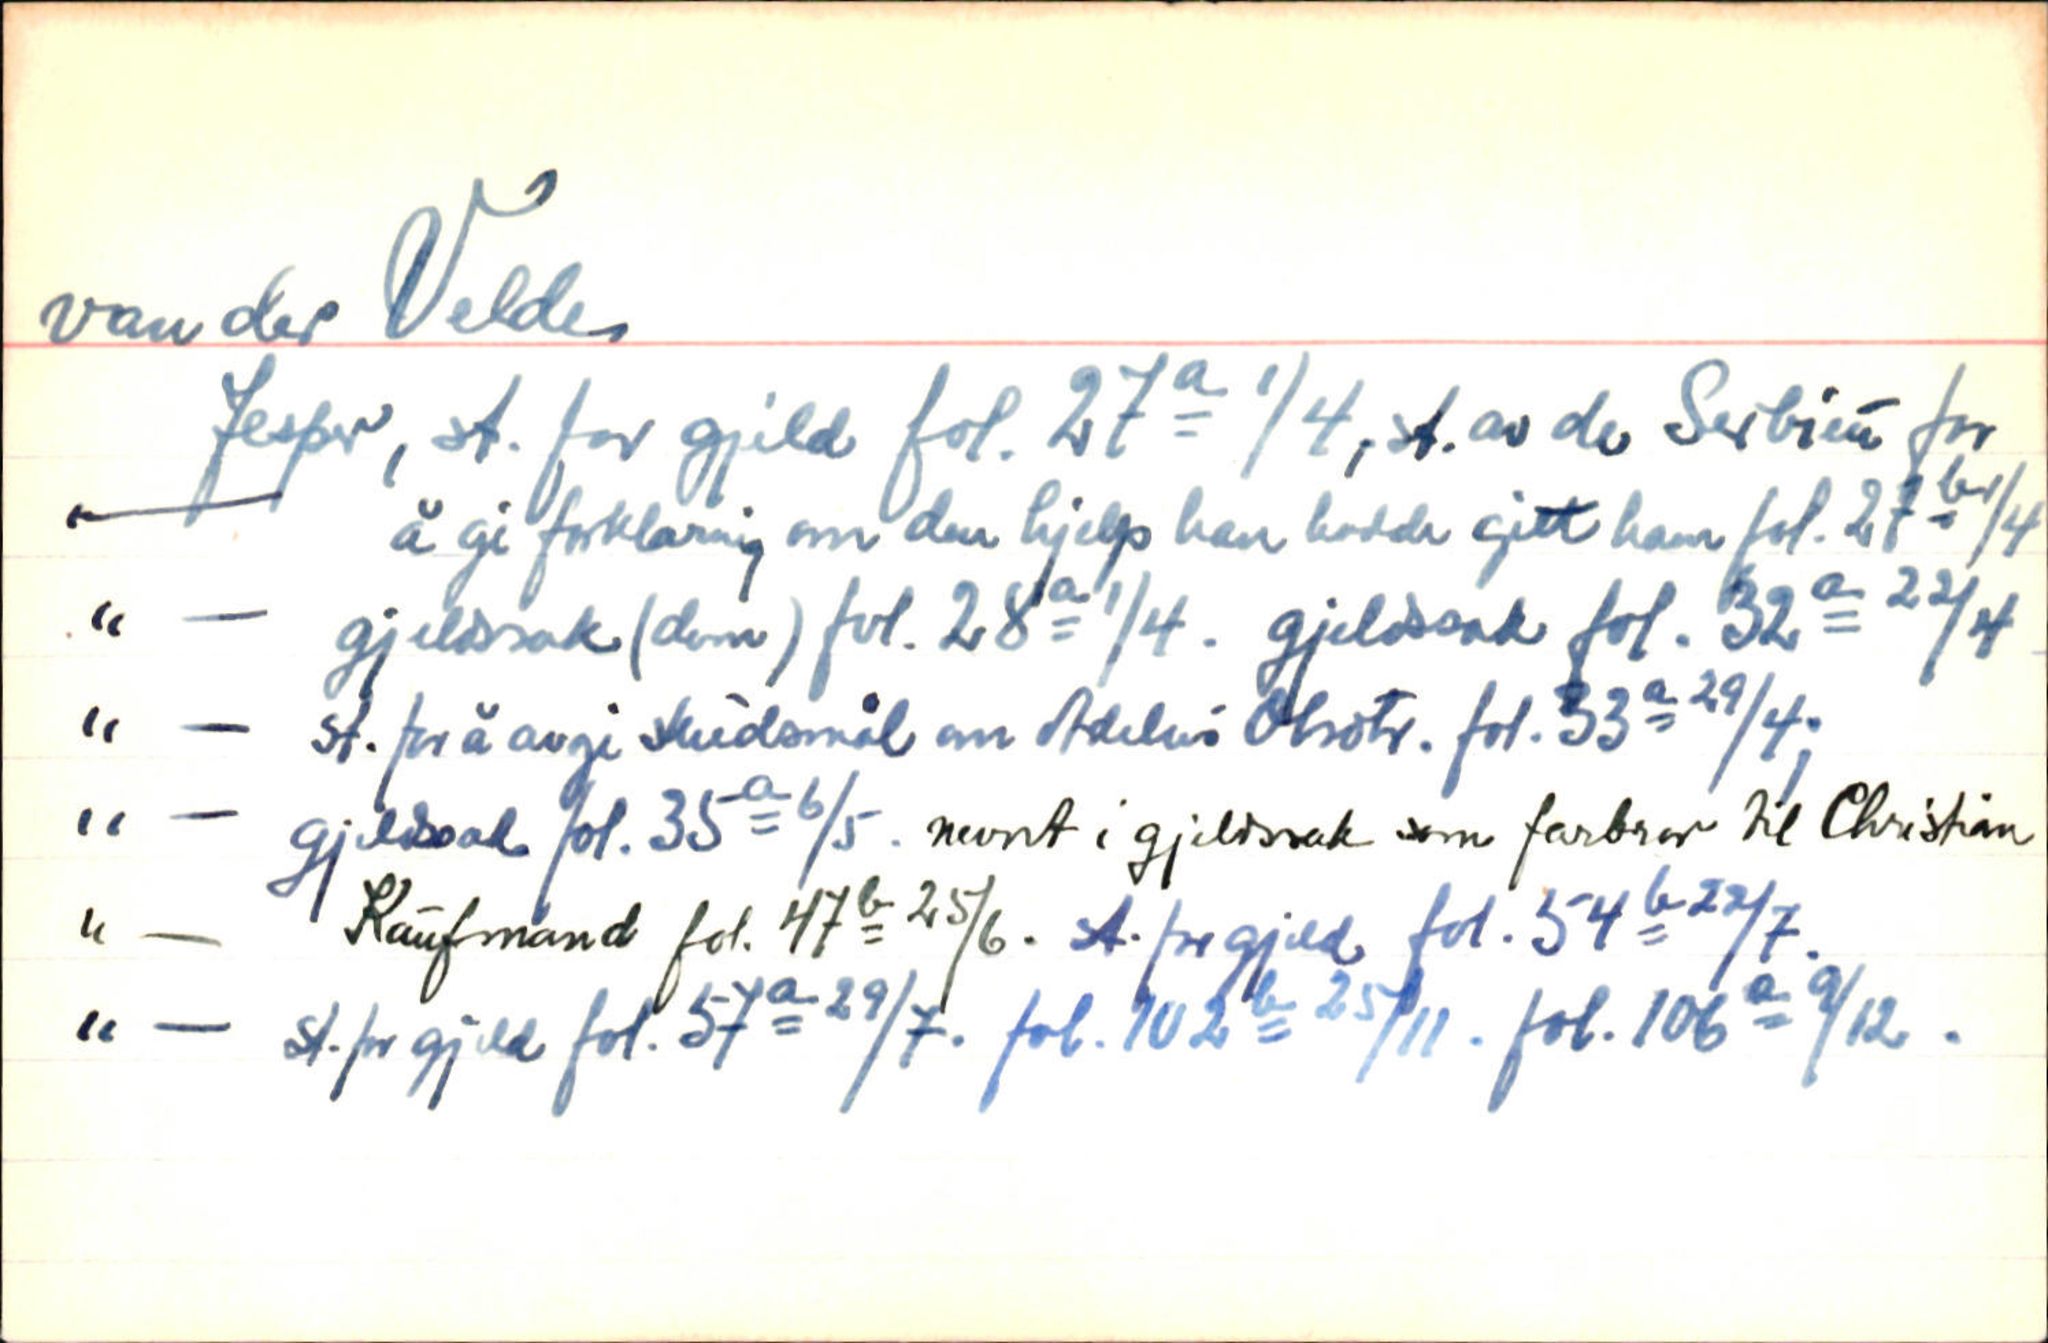 van der Velde,
Jesper, st. for gjeld fol. 27a 1/4, st. av de Serbien for
å gi forklaring om den hjelp han hadde gitt ham fol. 27b 1/4
" — gjeldssak (dom) fol. 28a 1/4. gjeldssak fol. 32a 22/4
" — st. for å avgi skudsmål om Adelus Olsdtr. fol. 33a 29/4;
" — gjeldssak fol. 35a 6/5. nevnt i gjeldssak som farbror til Christian
" — Kaufmand fol. 47b 25/6. st. for gjeld fol. 54b 22/7.
" — st. for gjeld fol. 57a 29/7. fol. 102b 25/11. fol. 106a 9/12.